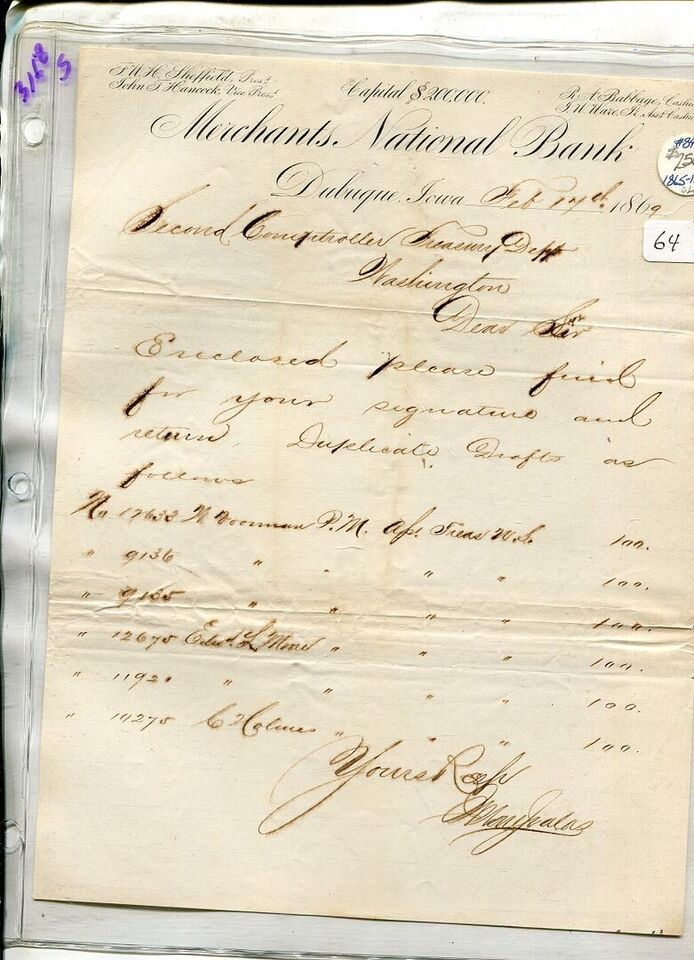 3168
S
F.W.H. Sheffield, Prest.
John T. Hancock, Vice Prest.
Capital $200,000.
R. A. Babbage, Cashr
J. H. Ware, Jr. Asst. Cashr
Merchants National Bank
Dubuque, Iowa Feb 17th 1869
64
Second Comptroller Treasury Dept
Washington
Dear Sir
Enclosed please find
for your signature and
return, Duplicate Drafts as
follows
No 12633 P.M. Ast Treas U.S. 100.
" 9136 " " " " 100.
" 9135 " " " " 100.
" 12675 Edwd L Moore " " " 100.
" 1192 " " " " 100.
" 10275 C Holmes " " " 100.
Yours Resp